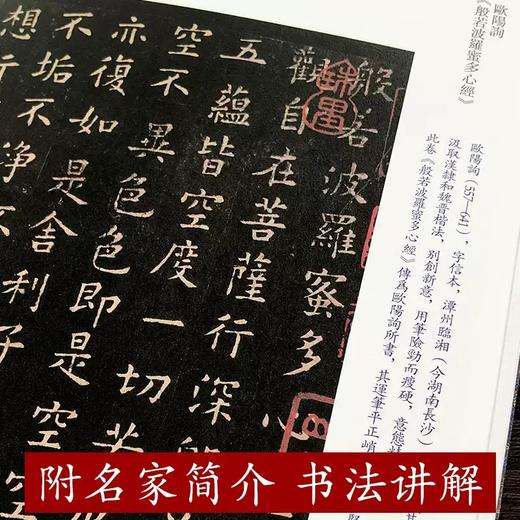 歐陽詢
《般若波羅蜜多心經》
歐陽詢(557—641),字信本,潭州臨湘(今湖南長沙)
汲取漢隸和魏晉楷法,別創新意,用筆險勁而瘦硬,意態
此卷《般若波羅蜜多心經》傳爲歐陽詢所書,其運筆平正峭
般若波羅蜜多心
觀自在菩薩行深
五蘊皆空度一切苦
空不異色色即是空
亦復如是舍利子
不垢不淨不
想行
附名家简介 书法讲解